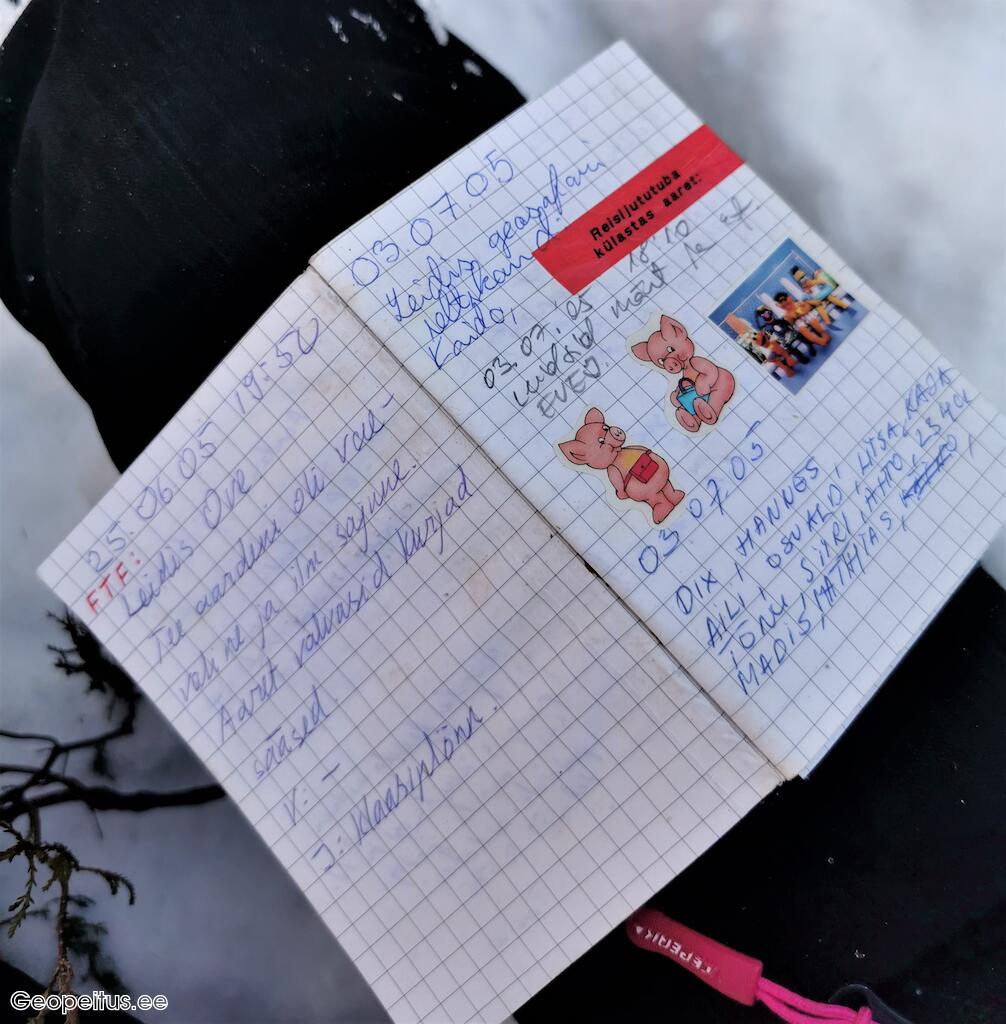 25.06.05 19:50
FTF:
Leidis Ove
Tee aardeni oli vae-
vali ne ja ilm sajune.
Aaret valvasid kurjad
sääsed
V: –
J: klaasiplönn.
03.07.05
Leidis geosafari
seltskond
Kaido,
Reisijututuba
külastas aaret:
03.07.05 18:10
leidsid märt ja
EVED.
03.07.05
DIX, HANNES,
AILI, OSVALD, LIISA, KAJA
TÕNU, SIIRI, AHTO, 234CL
MADIS, MATHIAS,
ГЕРЕЯК
Geopeitus.ee